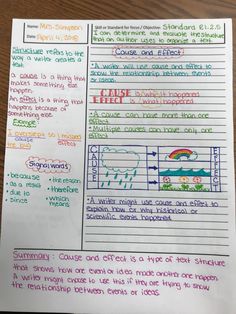 Name: Mrs. Simpson
Date: April 4, 2018
Skill or Standard for Focus / Objective: Standard RI.2.5
I can determine and examine the structure
that an author uses to organize a text.
Structure refers to the
way a writer creates a
text.
A cause is a thing that
makes something else
happen.
An effect is a thing that
happens because of
something else.
Example:
I overslept so I missed
the bus.
cause
effect
Signal words
• because
• as a result
• due to
• since
• the reason
• therefore
• which means
Cause and Effect!
• A writer will use cause and effect to
show the relationship between events
or ideas.
CAUSE is why it happened
EFFECT is what happened
• A cause can have more than one
effect
• Multiple causes can have only one
effect
CAUSE
EFFECT
• A writer might use cause and effect to
explain how or why historical or
scientific events happened.
Summary: Cause and effect is a type of text structure
that shows how one event or idea made another one happen.
A writer might choose to use this if they are trying to show
the relationship between events or ideas.